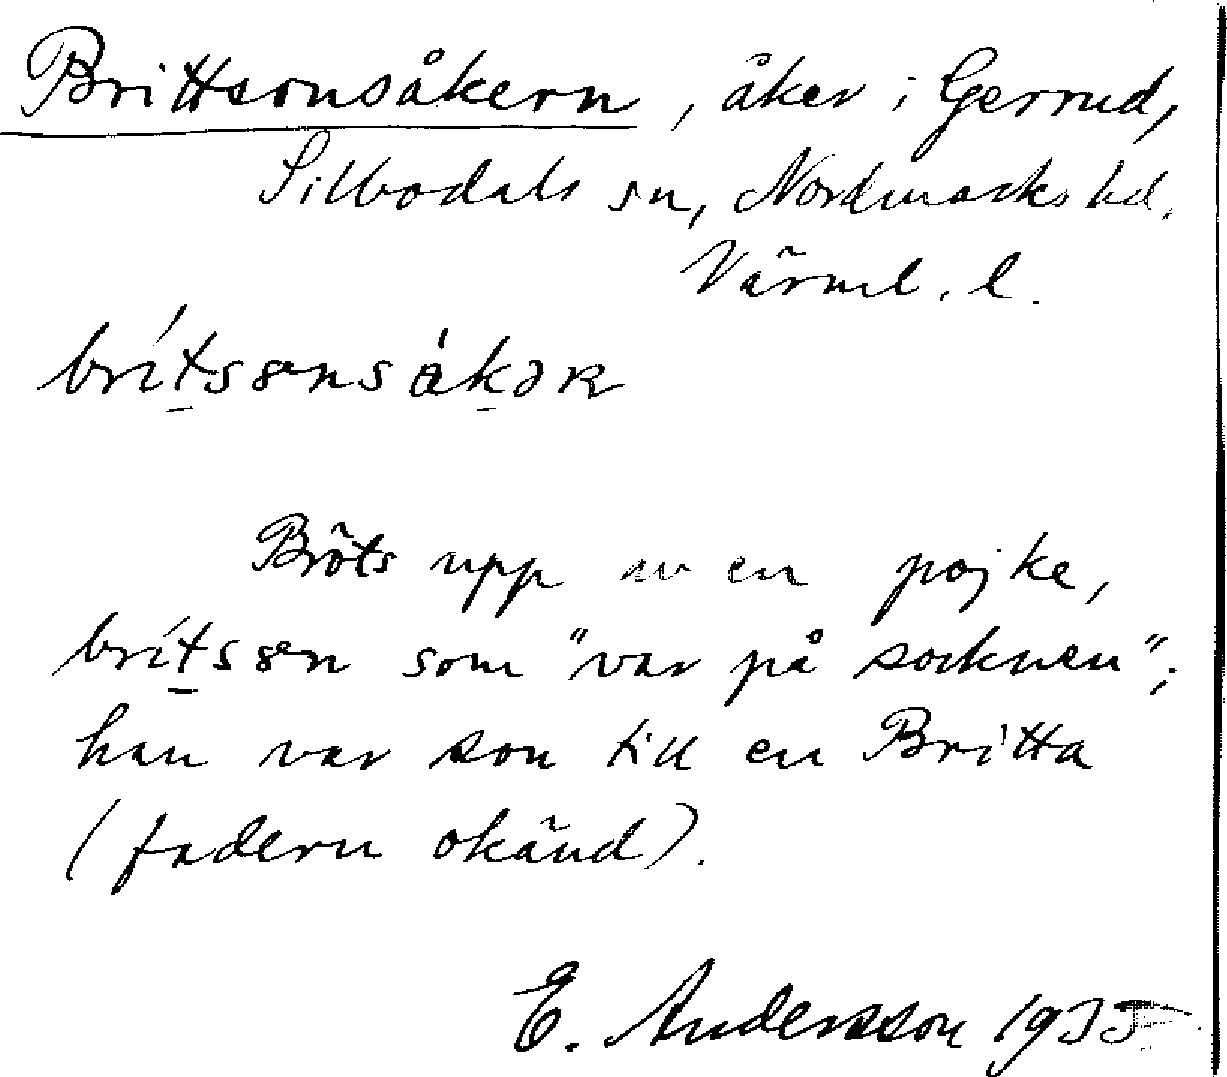 Brittsonsåkern, åker i Gerrud,
Silbodals sn, Nordmarks hd.
Värml. l.
brítssɵnsákəʀ
Bröts upp av en pojke,
brítssɵn som "var på socknen";
han var son till en Britta
(fadern okänd).
E. Andersson 1935